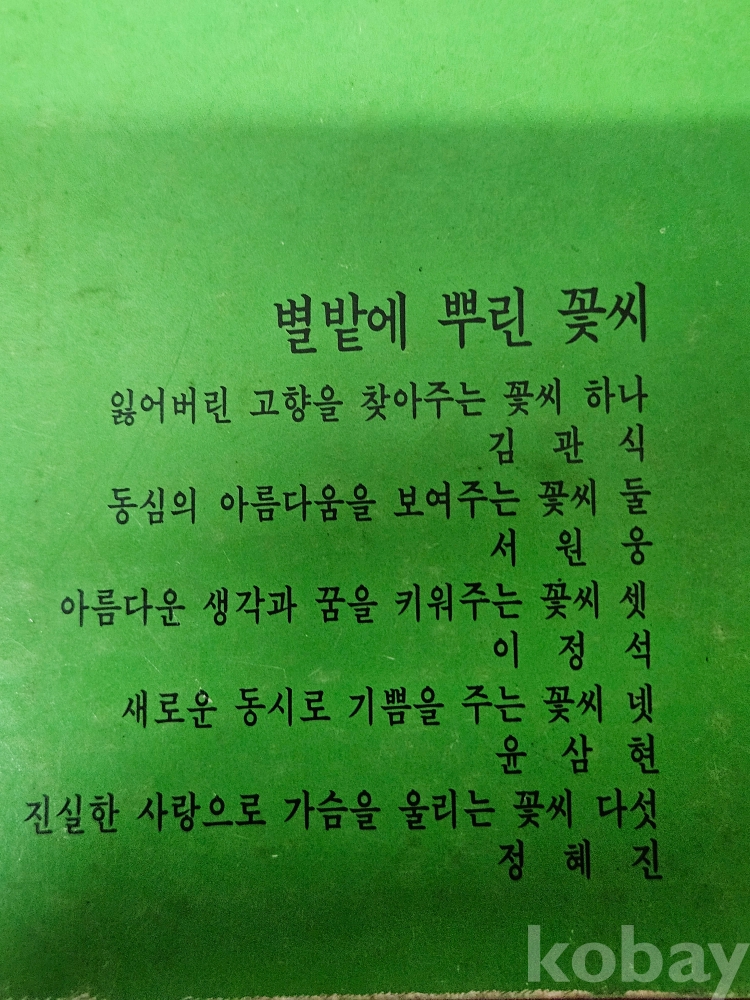 별밭에 뿌린 꽃씨
잃어버린 고향을 찾아주는 꽃씨 하나
김 관 식
동심의 아름다움을 보여주는 꽃씨 둘
서 원 웅
아름다운 생각과 꿈을 키워주는 꽃씨 셋
이 정 석
새로운 동시로 기쁨을 주는 꽃씨 넷
윤 삼 현
진실한 사랑으로 가슴을 울리는 꽃씨 다섯
정 혜 진
kobay